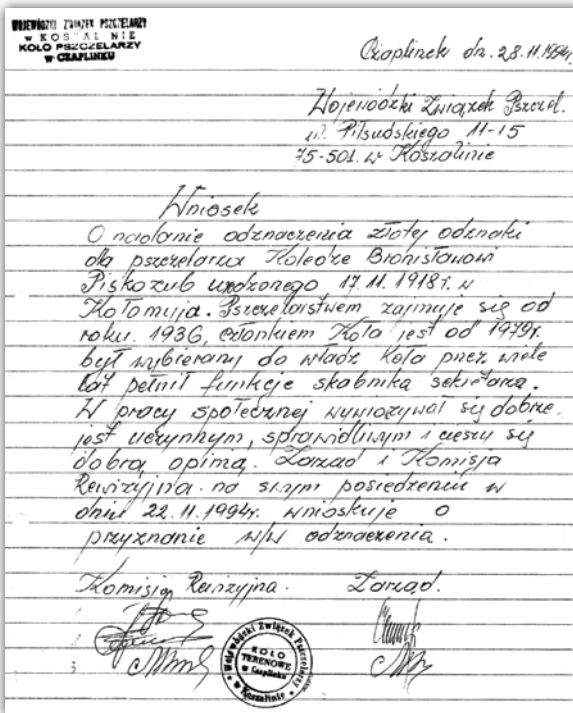 WOJEWÓDZKI ZWIĄZEK PSZCZELARZY
w KOSZALINIE
KOŁO PSZCZELARZY
W CZAPLINKU
Czaplinek dn. 28.11.1994r.
Wojewódzki Związek Pszczel.
ul. Piłsudskiego 11-15
75-501 w Koszalinie
Wniosek
O nadanie odznaczenia złotej odznaki
dla pszczelarza Koledze Bronisławowi
Piskozub urodzonego 17.11.1918r. w
Kołomyja. Pszczelarstwem zajmuje się od
roku. 1936, członkiem Koła jest od 1979r.
był wybierany do władz Koła przez wiele
lat pełnił funkcje skabnika sekretarza.
W pracy społecznej wywiązywał się dobrze.
jest uczynnym, sprawidliwym i cieszy się
dobrą opinią. Zarząd i Komisja
Rewizyjna na swym posiedzeniu w
dniu 22.11.1994r. wnioskuje o
przyznanie w/w odznaczenia.
Komisja Rewizyjna. Zarząd.
Wojewódzki Związek Pszczelarzy
w Koszalinie
KOŁO
TERENOWE
w Czaplinku